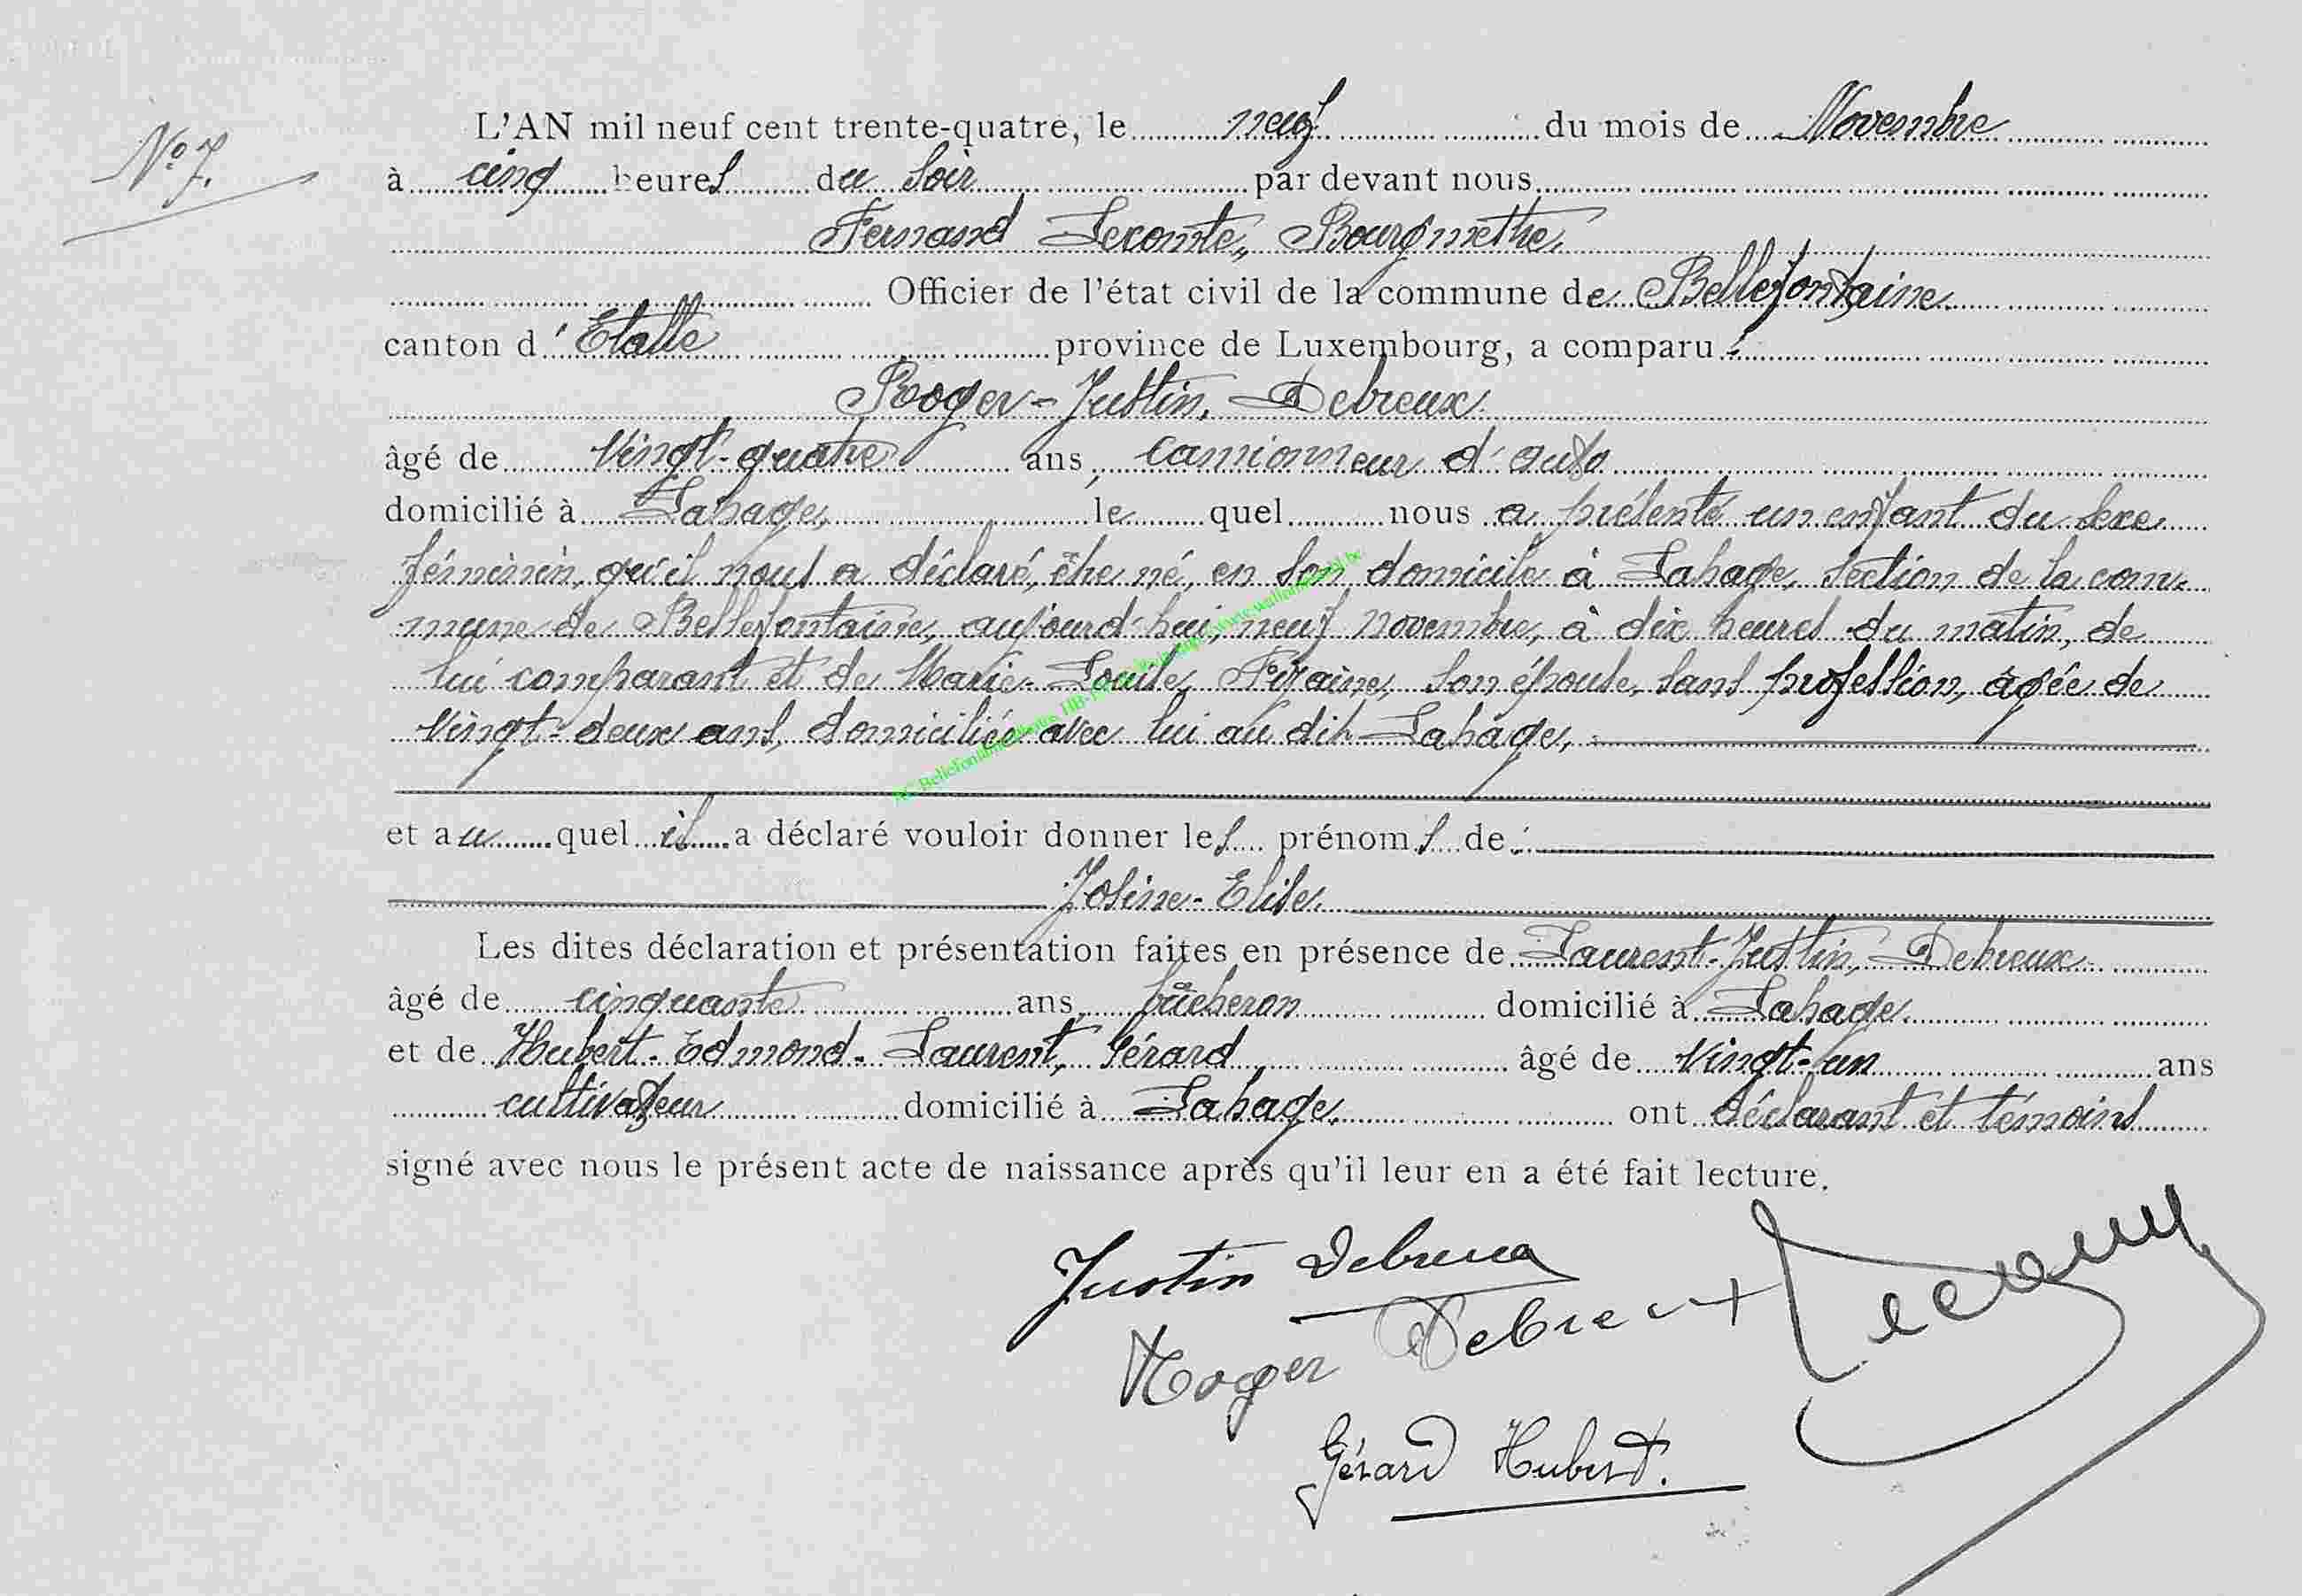 N° 7.
L'AN mil neuf cent trente-quatre, le neuf du mois de Novembre
à cinq heures du soir par devant nous
Fernand Lecomte, Bourgmettre,
Officier de l'état civil de la commune de Bellefontaine
canton d'Etalle province de Luxembourg, a comparu :
Roger-Justin, Debreux
âgé de vingt-quatre ans, camionneur d'auto
domicilié à Lahage, le quel nous a présenté un enfant du sexe
féminin, qu'il nous a déclaré, être né, en son domicile à Lahage, section de la com-
mune de Bellefontaine, aujourd'hui, neuf novembre, à dix heures du matin, de
lui comparant et de Marie-Louise, son épouse, sans profession, âgée de
vingt-deux ans, domiciliée avec lui au dit Lahage,
et au quel il a déclaré vouloir donner les prénoms de :
Josine-Elise.
Les dites déclaration et présentation faites en présence de Laurent-Justin, Debreux
âgé de cinquante ans, bûcheron domicilié à Lahage
et de Hubert-Edmond-Laurent, Gérard, âgé de vingt-un ans
cultivateur domicilié à Lahage, ont déclarant et témoins
signé avec nous le présent acte de naissance après qu'il leur en a été fait lecture.
Justin Debreux
Roger Debreux
Gérard Hubert.